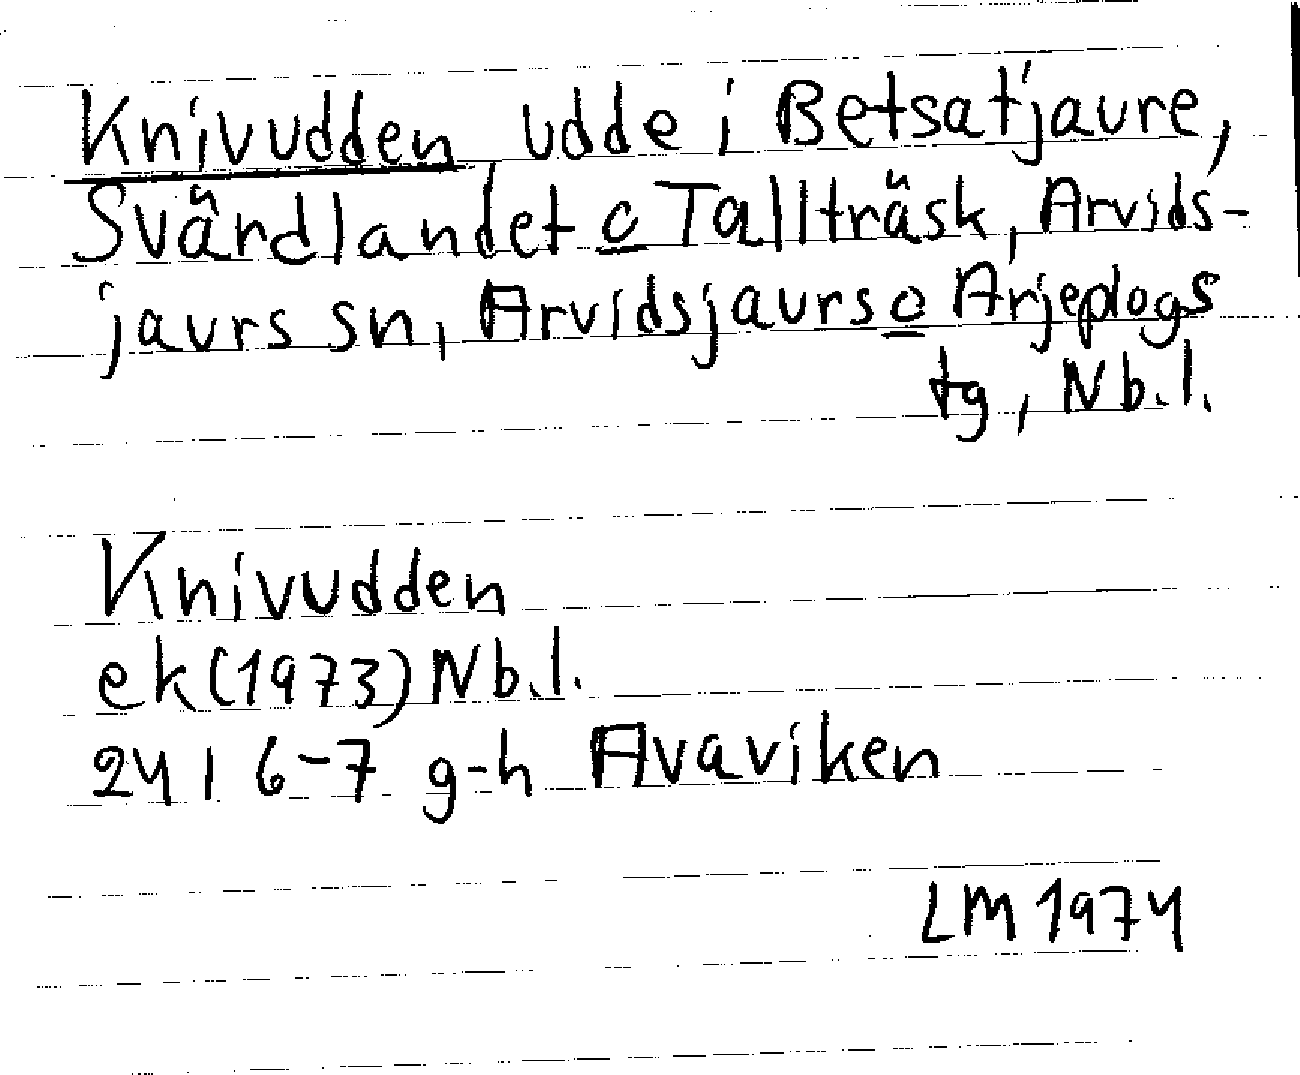 Knivudden udde i Betsatjaure,
Svärdlandet o Tallträsk, Arvids-
jaurs sn, Arvidsjaurs o Arjeplogs
tg, Nb.l.
Knivudden
ek(1973) Nb.l.
24 I 6-7 g-h Avaviken
LM 1974